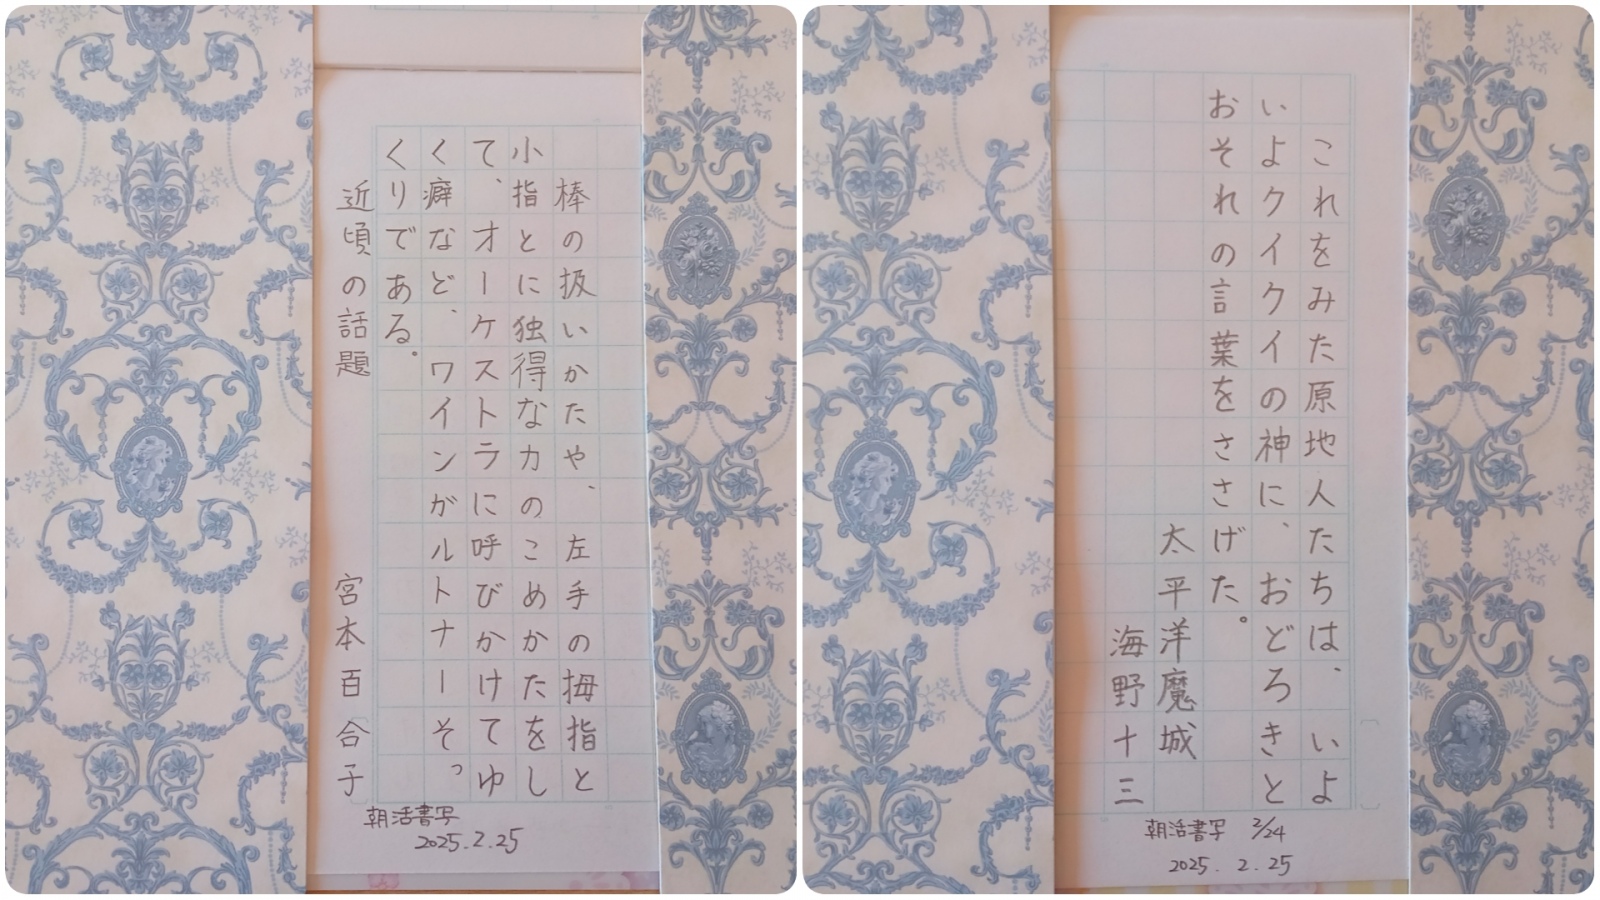 棒の扱いかたや、左手の拇指と
小指とに独得な力のこめかたをし
て、オーケストラに呼びかけてゆ
く癖など、ワインガルトナーそっ
くりである。
近頃の話題　宮本百合子
朝活書写
2025.2.25
これをみた原地人たちは、いよ
いよクイクイの神に、おどろきと
おそれの言葉をささげた。
太平洋魔城
海野十三
朝活書写 2/24
2025.2.25